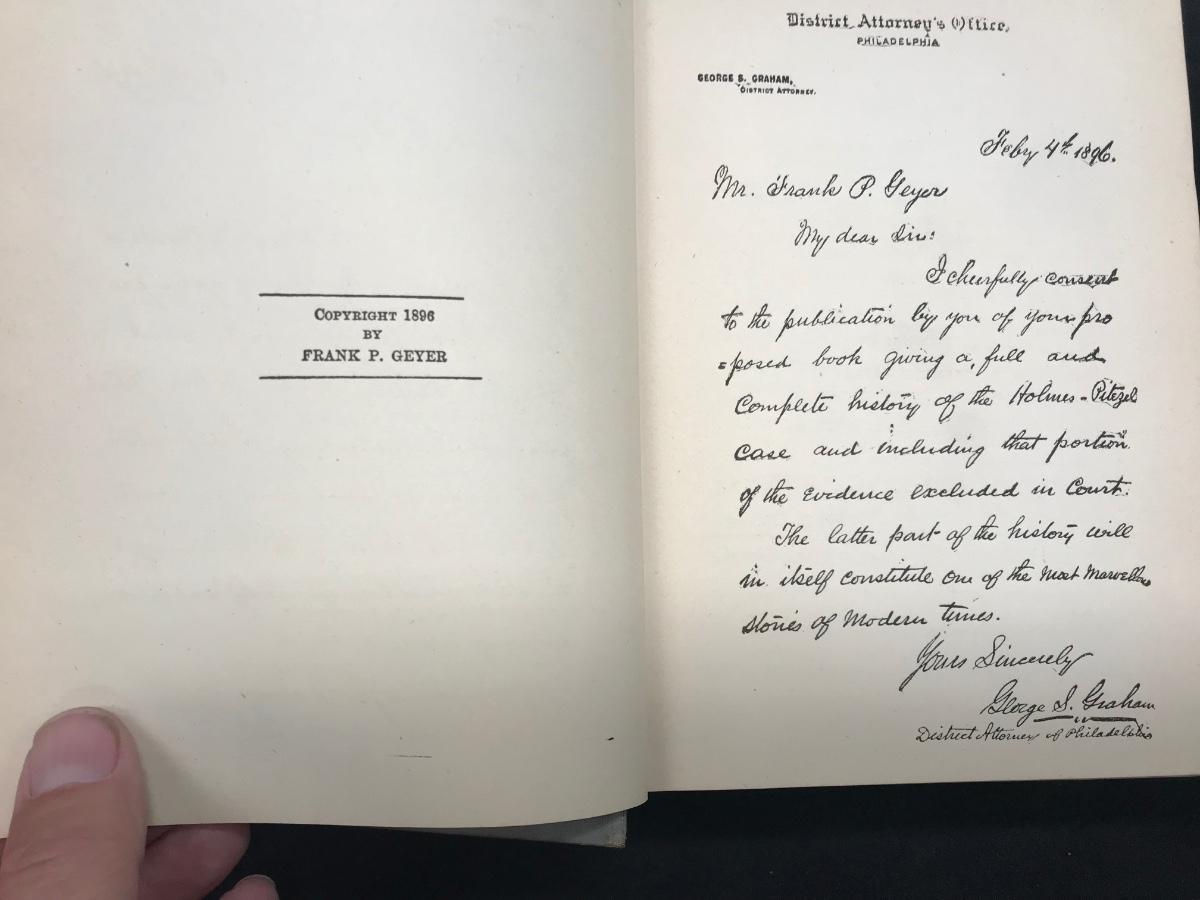 COPYRIGHT 1896
BY
FRANK P. GEYER
District Attorney's Office,
PHILADELPHIA
GEORGE S. GRAHAM,
DISTRICT ATTORNEY.
Feby 4th 1896.
Mr. Frank P. Geyer
My dear Sir:
I cheerfully consent
to the publication by you of your pro
=posed book giving a full and
Complete history of the Holmes-Pitezel
case and including that portion
of the Evidence excluded in Court.
The latter part of the history will
in itself constitute one of the Most Marvellous
stories of Modern times.
Yours Sincerely
George S. Graham
District Attorney of Philadelphia